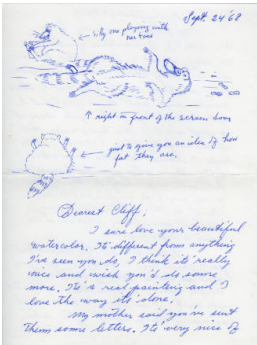 Sept. 24 '68
Silly one playing with
her toes
↑ right in front of the screen door
← just to give you an idea of how
fat they are.
Dearest Cliff,
I sure love your beautiful
watercolor. It's different from anything
I've seen you do, I think it's really
nice and wish you'd do some
more. It's real painting and I
love the way it's done.
My mother said you've sent
them some letters. It's very nice of